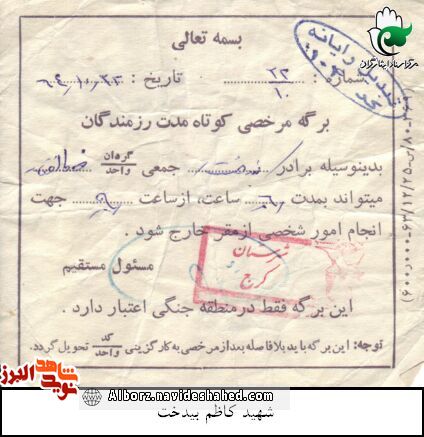 مرکز اسناد ایثارگران
بسمه تعالی
شماره : ۲۲/۱۰ تاریخ : ۶۴/۱۰/۲۳
برگه مرخصی کوتاه مدت رزمندگان
بدینوسیله برادر جمعی گردان/واحد
میتواند بمدت ساعت، ازساعت جهت
انجام امور شخصی ازمقر خارج شود .
شهرستان
کرج
مسئول مستقیم
این برگه فقط درمنطقه جنگی اعتبار دارد .
توجه: این برگه باید بلافاصله بعد از مرخصی به کارگزینی کد/واحد تحویل گردد.
نوید شاهد البرز
Alborz.navideshahed.com
شهید کاظم بیدخت